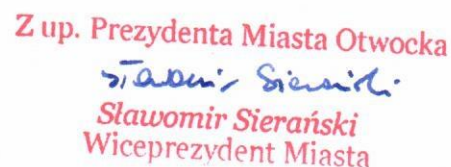 Z up. Prezydenta Miasta Otwocka
Sławomir Sierański
Sławomir Sierański
Wiceprezydent Miasta